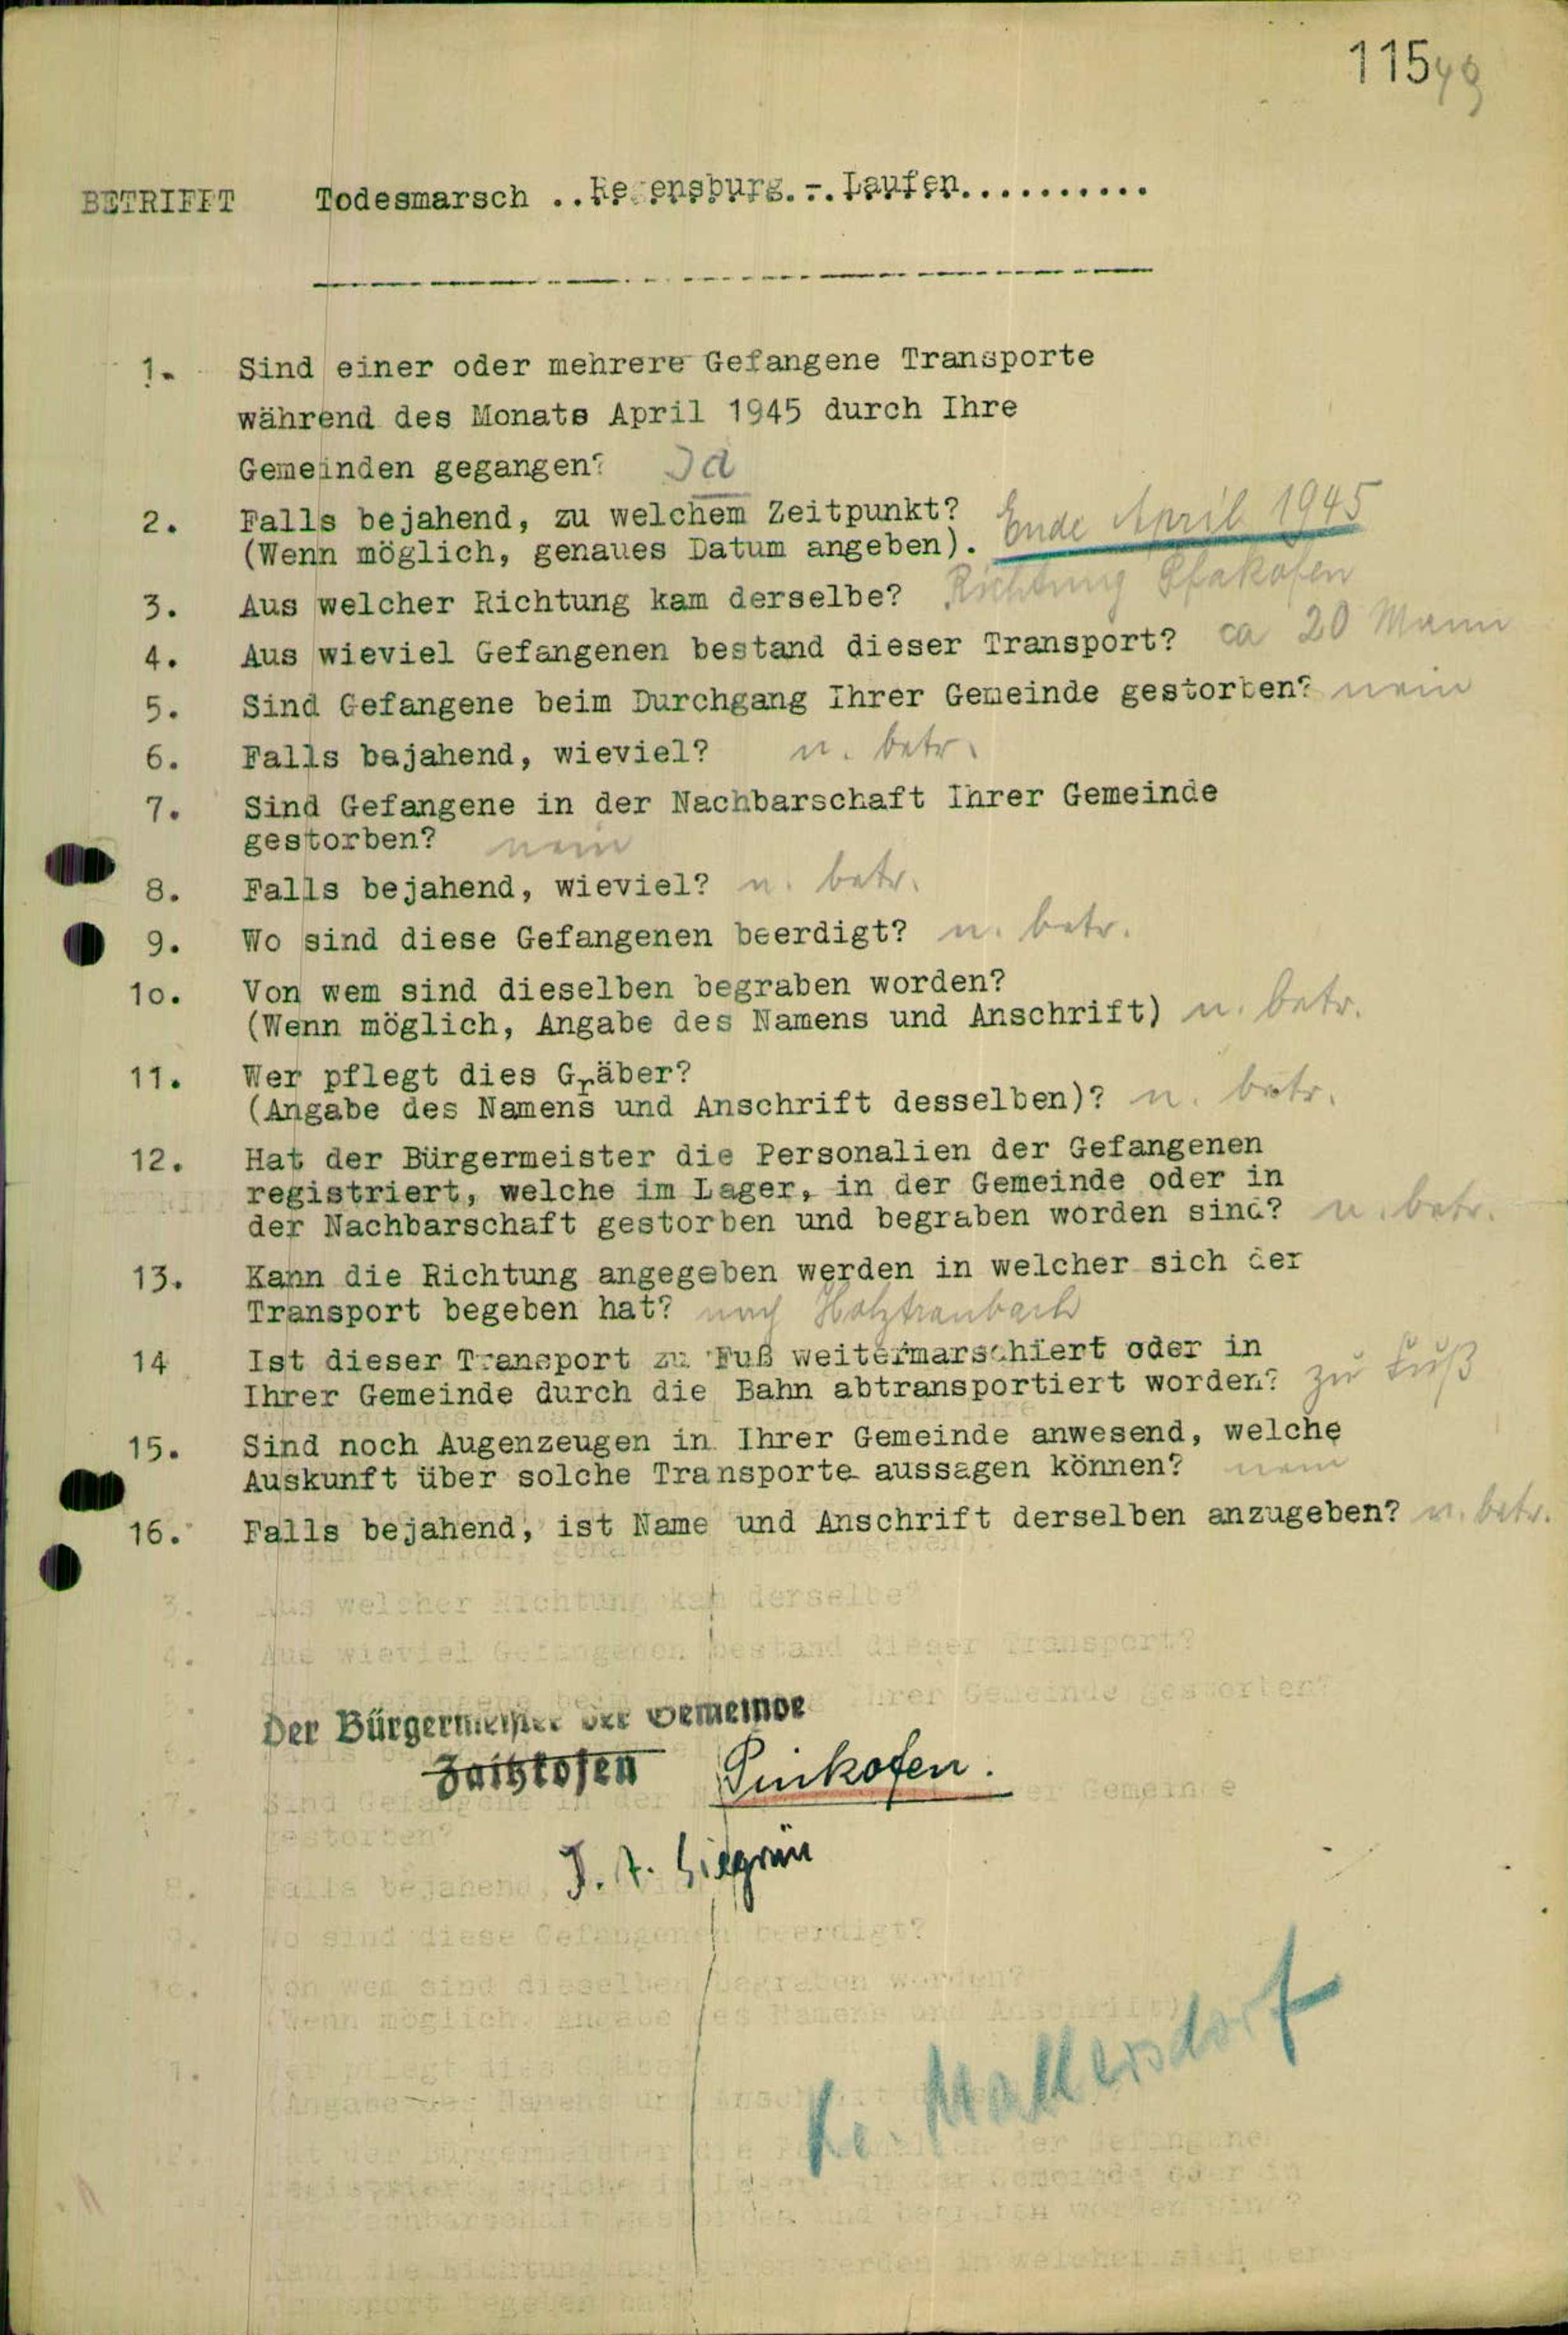 115
BETRIFFT Todesmarsch ..Regensburg.-.Laufen..........
1. Sind einer oder mehrere Gefangene Transporte
während des Monats April 1945 durch Ihre
Gemeinden gegangen? Ja
2. Falls bejahend, zu welchem Zeitpunkt? Ende April 1945
(Wenn möglich, genaues Datum angeben).
3. Aus welcher Richtung kam derselbe? Richtung Pfakofen
4. Aus wieviel Gefangenen bestand dieser Transport? ca 20 Mann
5. Sind Gefangene beim Durchgang Ihrer Gemeinde gestorben? nein
6. Falls bajahend, wieviel? n. betr.
7. Sind Gefangene in der Nachbarschaft Ihrer Gemeinde
gestorben? nein
8. Falls bejahend, wieviel? n. betr.
9. Wo sind diese Gefangenen beerdigt? n. betr.
1o. Von wem sind dieselben begraben worden?
(Wenn möglich, Angabe des Namens und Anschrift) n. betr.
11. Wer pflegt dies Gräber?
(Angabe des Namens und Anschrift desselben)? n. betr.
12. Hat der Bürgermeister die Personalien der Gefangenen
registriert, welche im Lager, in der Gemeinde oder in
der Nachbarschaft gestorben und begraben worden sind? n. betr.
13. Kann die Richtung angegeben werden in welcher sich der
Transport begeben hat? nach Holztraubach
14 Ist dieser Transport zu Fuß weitermarschiert oder in
Ihrer Gemeinde durch die Bahn abtransportiert worden? zu Fuß
15. Sind noch Augenzeugen in Ihrer Gemeinde anwesend, welche
Auskunft über solche Transporte aussagen können? nein
16. Falls bejahend, ist Name und Anschrift derselben anzugeben? n. betr.
Der Bürgermeister der Gemeinde
Zaitzkofen Pinkofen.
J. A.
Kr. Mallersdorf